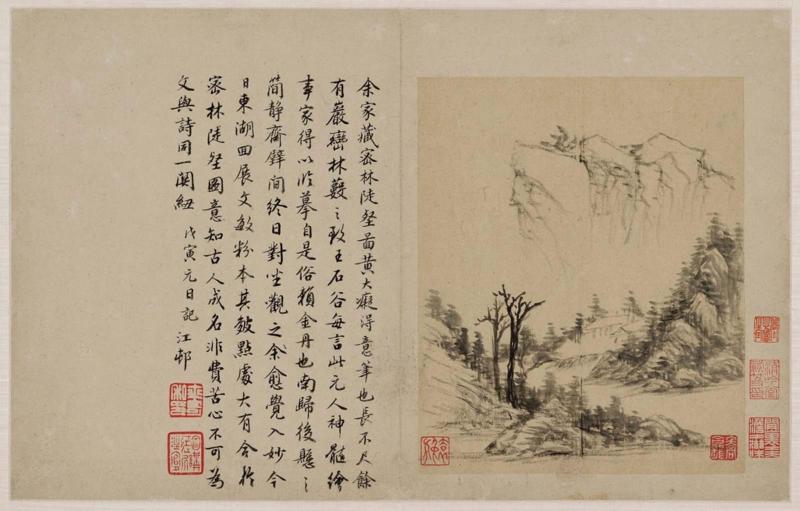 余家藏密林陡壑啚黃大癡得意筆也長不尺餘
有巖巒林薮之致王石谷每言此元人神髓繪
事家得以臨摹自是俗賴金丹也南歸後懸之
簡靜齋壁間終日對坐觀之余愈覺入妙今
日東湖回展文敏粉本其皴點處大有合於
密林陡壑圖意知古人成名非費苦心不可為
文與詩同一關紐 戊寅元日記 江邨